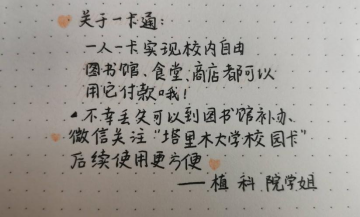 关于一卡通:
一人一卡实现校内自由
图书馆、食堂、商店都可以
用它付款哦!
·不幸丢失可以到图书馆补办、
微信关注“塔里木大学校园卡”
后续使用更方便
——植科院学姐